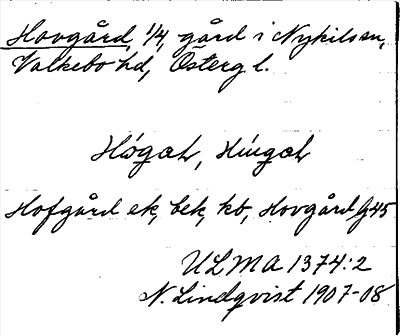 Hovgård, 1/4, gård i Nykils sn,
Valkebo hd, Östergl.
Hofgård ek, bek, kb, Hovgård G45
ULMA 1374:2
N. Lindqvist 1907-08